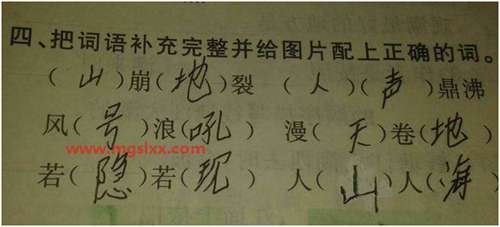 四、把词语补充完整并给图片配上正确的词。
(山)崩(地)裂 (人)(声)鼎沸
风(号)浪(吼) 漫(天)卷(地)
www.mgslxx.com
若(隐)若(现) 人(山)人(海)